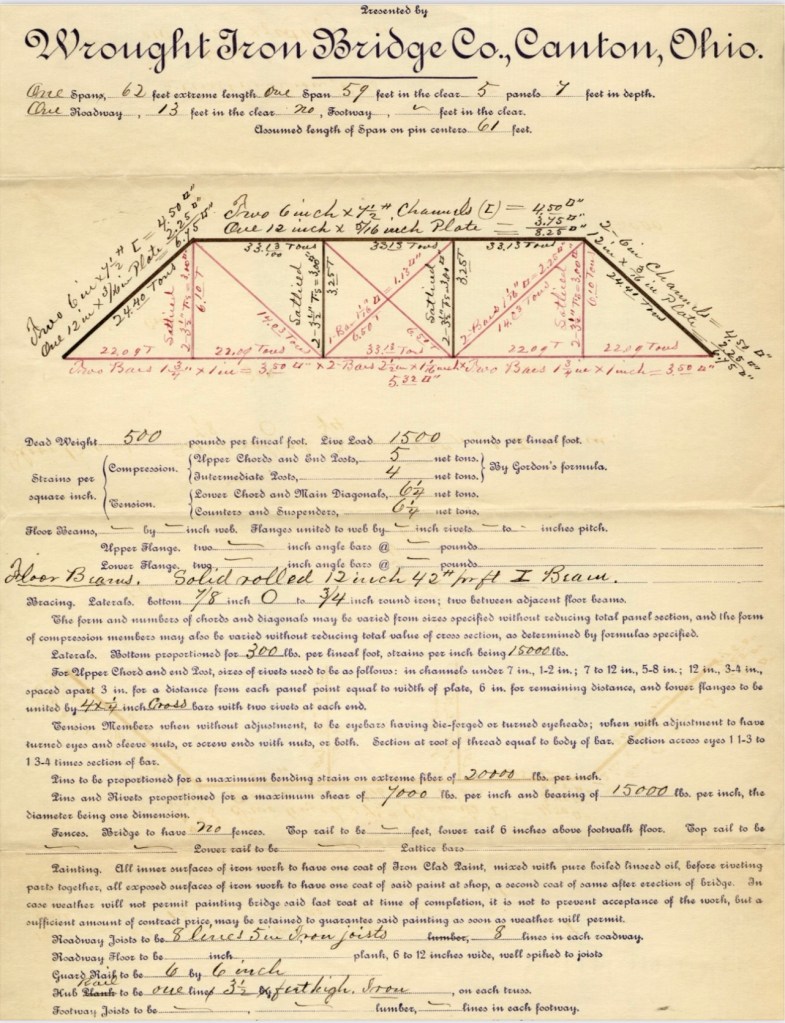 Presented by
Wrought Iron Bridge Co., Canton, Ohio.
One Spans, 62 feet extreme length One Span 59 feet in the clear 5 panels 7 feet in depth.
One Roadway, 13 feet in the clear no, Footway, feet in the clear.
Assumed length of Span on pin centers 61 feet.
Two 6 inch x 7½ # Channels (C) = 4.50 □"
One 12 inch x 5/16 inch Plate = 3.75 □"
8.25 □"
Two 6 in x 7½ # [ = 4.50 □"
One 12 in x 3/16 in Plate = 2.25 □"
6.75 □"
24.40 Tons
33.13 Tons
33.13 Tons
33.13 Tons
2 - 6 in Channels = 4.50 □"
12 in x 3/16 in Plate = 2.25 □"
6.75 □"
24.40 Tons
Latticed
6.10 T
14.03 Tons
Latticed
3.25 T
6.50
Latticed
3.25 T
14.03 Tons
Latticed
6.10 Tons
22.09 T
22.09 Tons
33.13 Tons
22.09 T
22.09 Tons
Two Bars 1¾" x 1 in = 3.50 □"
5.32 □"
Two Bars 1¾ in x 1 inch = 3.50 □"
Dead Weight 500 pounds per lineal foot. Live Load 1500 pounds per lineal foot.
Strains per square inch. Compression. Upper Chords and End Posts, 5 net tons. By Gordon's formula.
Intermediate Posts, 4 net tons.
Tension. Lower Chord and Main Diagonals, 6¼ net tons.
Counters and Suspenders, 6¼ net tons.
Floor Beams, by inch web. Flanges united to web by inch rivets to inches pitch.
Upper Flange. two inch angle bars @ pounds
Lower Flange. two inch angle bars @ pounds
Floor Beams. Solid rolled 12 inch 42 # pr ft I Beam.
Bracing. Laterals. bottom 7/8 inch O to 3/4 inch round iron; two between adjacent floor beams.
The form and numbers of chords and diagonals may be varied from sizes specified without reducing total panel section, and the form
of compression members may also be varied without reducing total value of cross section, as determined by formulas specified.
Laterals. Bottom proportioned for 300 lbs. per lineal foot, strains per inch being 15000 lbs.
For Upper Chord and end Post, sizes of rivets used to be as follows: in channels under 7 in., 1-2 in.; 7 to 12 in., 5-8 in.; 12 in., 3-4 in.,
spaced apart 3 in. for a distance from each panel point equal to width of plate, 6 in. for remaining distance, and lower flanges to be
united by 4 x ¼ inch Cross bars with two rivets at each end.
Tension Members when without adjustment, to be eyebars having die-forged or turned eyeheads; when with adjustment to have
turned eyes and sleeve nuts, or screw ends with nuts, or both. Section at root of thread equal to body of bar. Section across eyes 1 1-3 to
1 3-4 times section of bar.
Pins to be proportioned for a maximum bending strain on extreme fiber of 20000 lbs. per inch.
Pins and Rivets proportioned for a maximum shear of 7000 lbs. per inch and bearing of 15000 lbs. per inch, the
diameter being one dimension.
Fences. Bridge to have No fences. Top rail to be feet, lower rail 6 inches above footwalk floor. Top rail to be
Lower rail to be Lattice bars
Painting. All inner surfaces of iron work to have one coat of Iron Clad Paint, mixed with pure boiled linseed oil, before riveting
parts together, all exposed surfaces of iron work to have one coat of said paint at shop, a second coat of same after erection of bridge. In
case weather will not permit painting bridge said last coat at time of completion, it is not to prevent acceptance of the work, but a
sufficient amount of contract price, may be retained to guarantee said painting as soon as weather will permit.
Roadway Joists to be 8 lines 5 in Iron joists lumber, 8 lines in each roadway.
Roadway Floor to be inch plank, 6 to 12 inches wide, well spiked to joists
Guard Rail to be 6 by 6 inch
Hub Plank Rail to be one line 3½ feet high. Iron, on each truss.
Footway Joists to be lumber, lines in each footway.